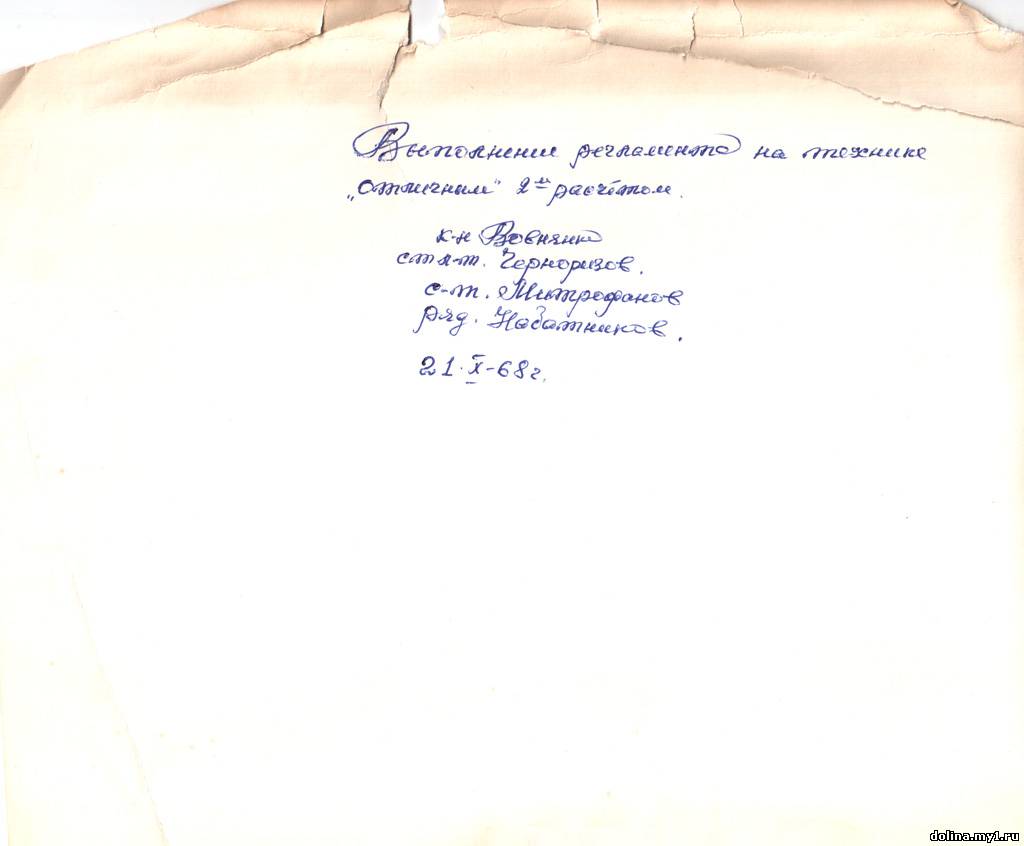 Выполнение регламента на технике
„отличным" 2ᵐ расчётом.
к-н Вовнянко
ст л-т. Черноризов.
с-т. Митрофанов
ряд. Набатников.
21·X-68г.
dolina.my1.ru